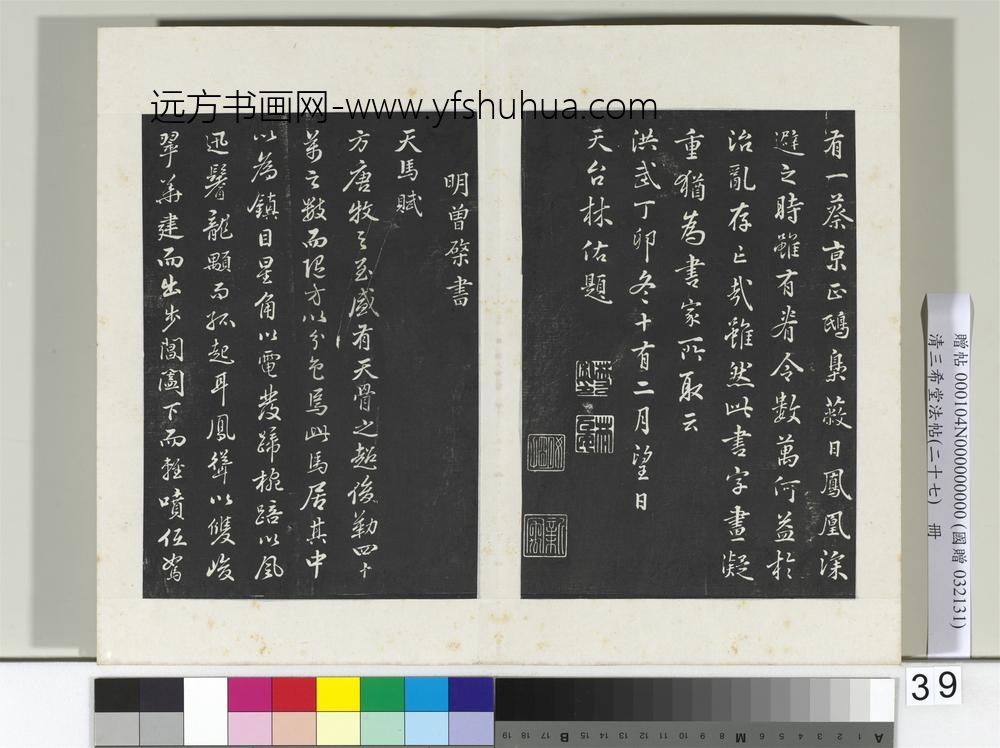 远方书画网-www.yfshuhua.com
有一蔡京正鴟梟蔽日鳳凰深
避之時雖有眷令數萬何益於
治亂存亡哉雖然此書字畫凝
重猶為書家所取云
洪武丁卯冬十有二月望日
天台林佑題
明曾棨書
天馬賦
方唐牧之至盛有天骨之超俊勒四十
萬之數而隨方以分色焉此馬居其中
以為鎮目星角以電發蹄椀踣以風
迅鬐龍顒而孤起耳鳳聳以雙峻
翠華建而出步閶闔下而輕噴伍駑
贈帖 000104N000000000 (國贈 032131)
清三希堂法帖(二十七) 冊
39